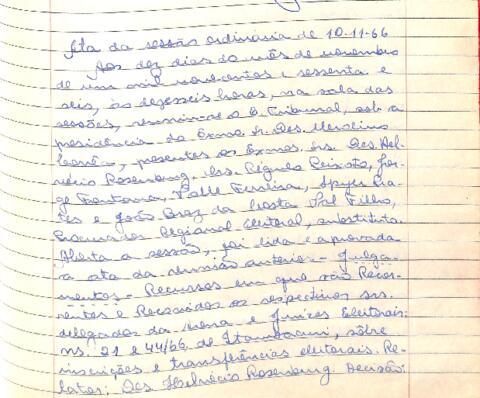 Ata da sessão ordinária de 10-11-66
Aos dez dias do mês de novembro
de um mil novecentos e sessenta e
seis, às dezesseis horas, na sala das
sessões, reuniu-se o E. Tribunal, sob a
presidência do Exmo. Sr. Des. Merolino
Corrêa, presentes os Exmos. Srs. Des. Hel-
vécio Rosenburg. Drs. Régulo Peixoto, Jor-
ge Fontana, Valle Ferreira, Spyer Pra-
tes e João Braz da Costa Val Filho,
Procurador Regional Eleitoral, substituto.
Aberta a sessão, foi lida e aprovada
a ata da reunião anterior - Julga-
mentos - Recursos em que são Recor-
rentes e Recorridos os respectivos srs.
delegados da Arena e Juízes Eleitorais:
ns: 21 e 44/66, de Itambacuri, sôbre
inscrições e transferências eleitorais. Re-
lator: Des. Helvécio Rosenburg. Decisão: